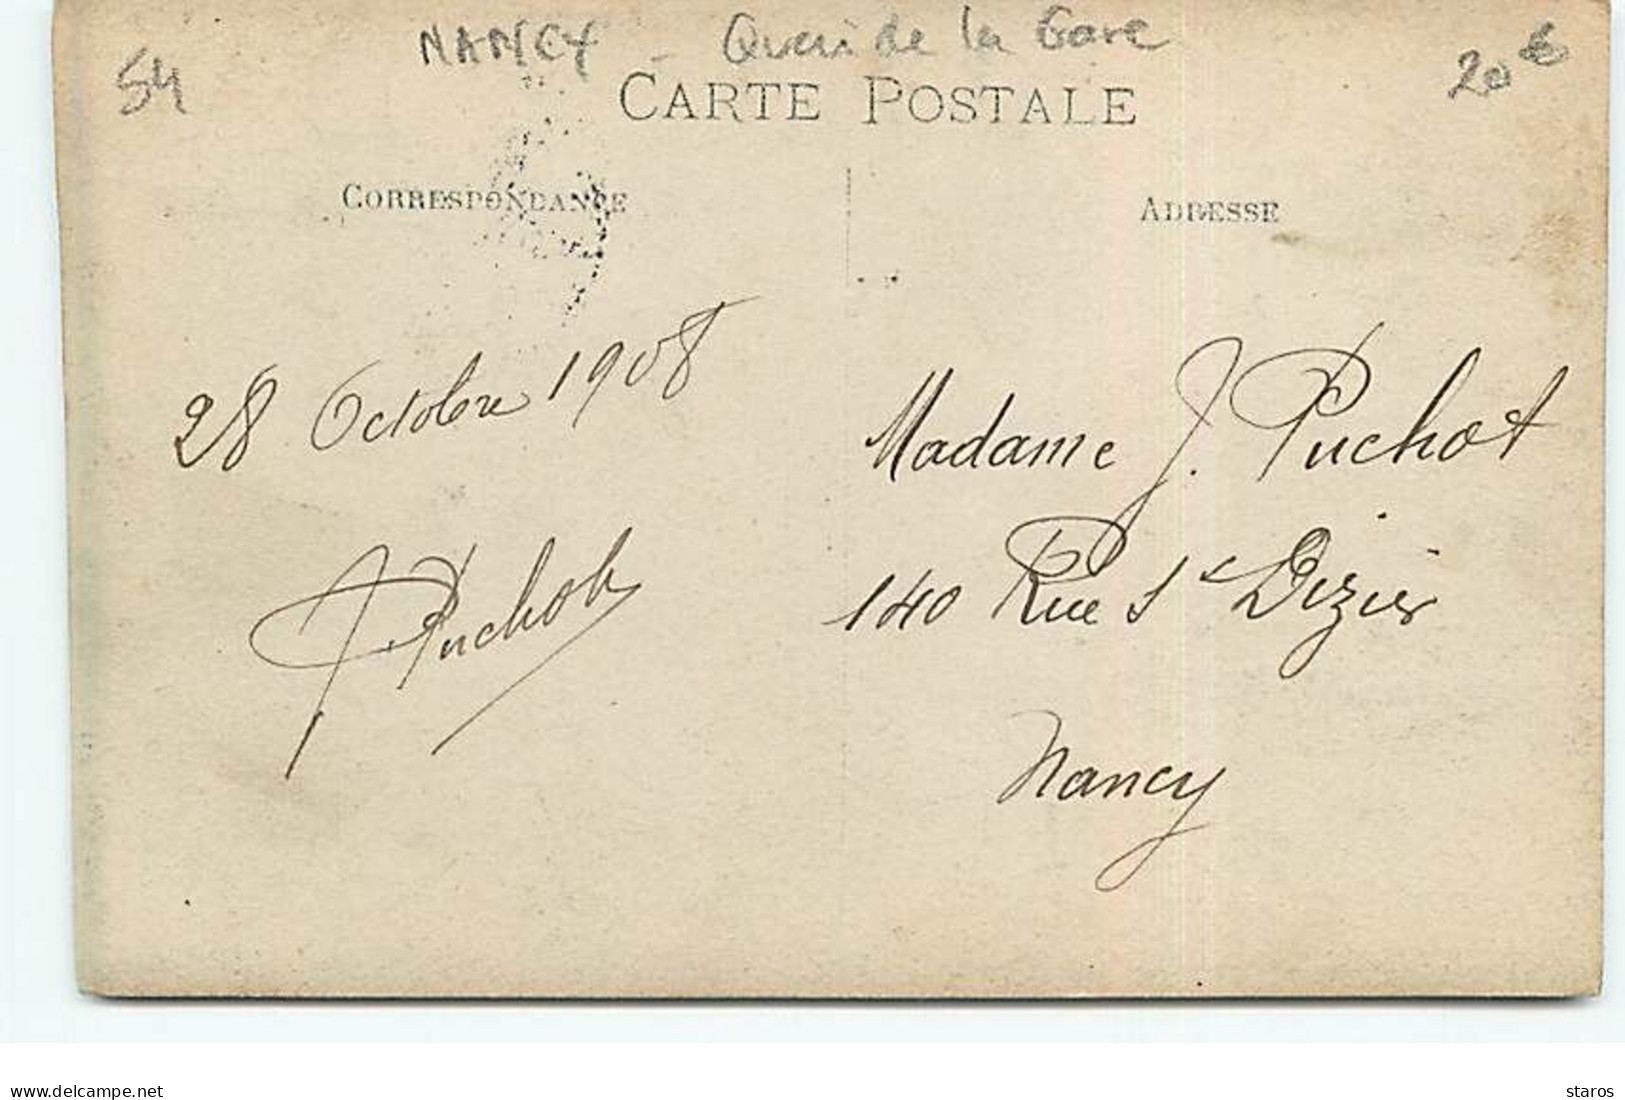 54
NANCY - Quai de la Gare
20€
CARTE POSTALE
CORRESPONDANCE
ADRESSE
28 Octobre 1908
J Puchot
Madame J. Puchot
140 Rue St Dizier
Nancy
www.delcampe.net
staros